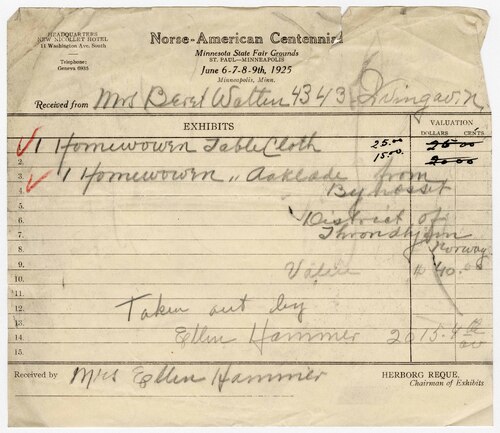 HEADQUARTERS
NEW NICOLLET HOTEL
11 Washington Ave. South
Telephone;
Geneva 6935
Norse-American Centennial
Minnesota State Fair Grounds
ST. PAUL—MINNEAPOLIS
June 6-7-8-9th, 1925
Minneapolis, Minn.
Received from Mrs Beret Watten 4343 Irving av. N.
EXHIBITS
VALUATION
DOLLARS CENTS
1 Homewowen Table Cloth 25.00 25 00
2. 15.00 20 00
3. 1 Homewowen „ from
4.
5.
6. District of
7. Throndhjem
8. Norway
9. Value $ 40.00
10.
11.
12. Taken out by
13.
14. Ellen Hammer 2015.4
15.
Received by Mrs Ellen Hammer
HERBORG REQUE,
Chairman of Exhibits